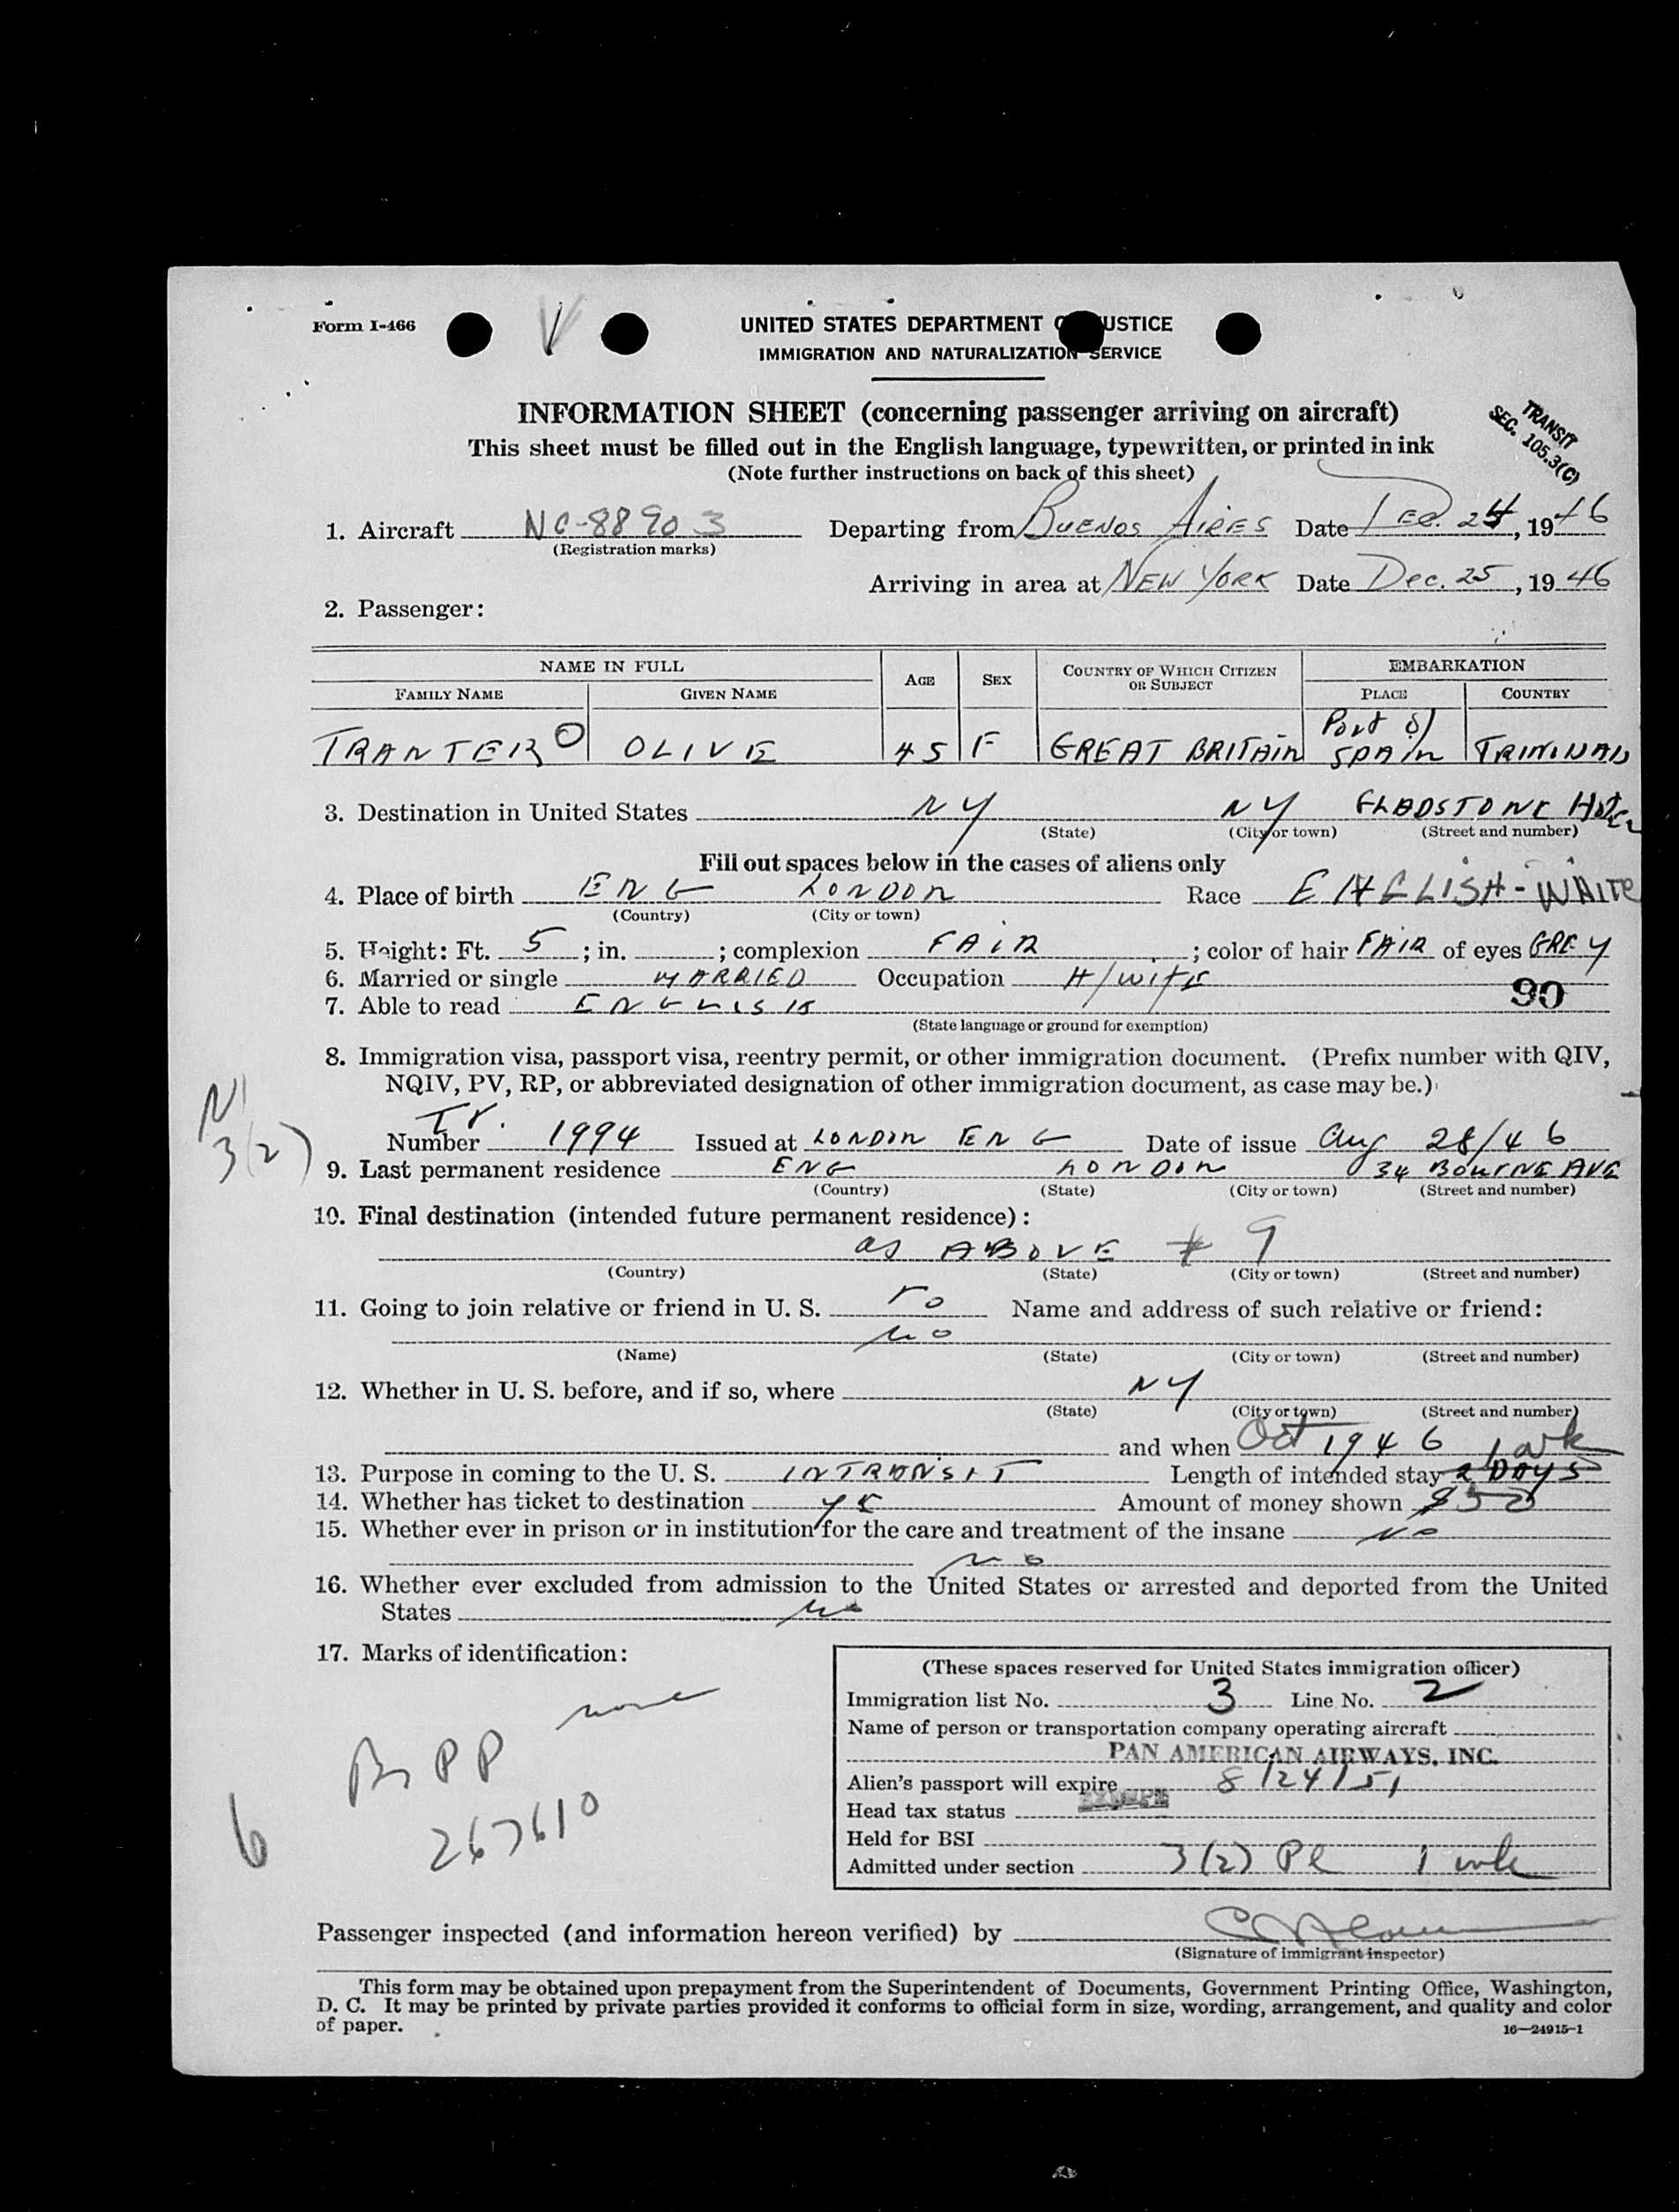 Form I-466
UNITED STATES DEPARTMENT OF JUSTICE
IMMIGRATION AND NATURALIZATION SERVICE
INFORMATION SHEET (concerning passenger arriving on aircraft)
TRANSIT
SEC. 105.3(C)
This sheet must be filled out in the English language, typewritten, or printed in ink
(Note further instructions on back of this sheet)
1. Aircraft NC-88903 Departing from BUENOS AIRES Date DEC. 24, 1946
(Registration marks)
Arriving in area at NEW YORK Date Dec. 25, 1946
2. Passenger:
NAME IN FULL AGE SEX COUNTRY OF WHICH CITIZEN OR SUBJECT EMBARKATION
FAMILY NAME GIVEN NAME PLACE COUNTRY
TRANTER O OLIVE 45 F GREAT BRITAIN Port of SPAIN TRINIDAD
3. Destination in United States NY NY GLADSTONE HOTEL
(State) (City or town) (Street and number)
Fill out spaces below in the cases of aliens only
4. Place of birth ENG LONDON Race ENGLISH-WHITE
(Country) (City or town)
5. Height: Ft. 5; in. ; complexion FAIR; color of hair FAIR of eyes GREY
6. Married or single MARRIED Occupation H/WIFE
90
7. Able to read ENGLISH
(State language or ground for exemption)
8. Immigration visa, passport visa, reentry permit, or other immigration document. (Prefix number with QIV,
NQIV, PV, RP, or abbreviated designation of other immigration document, as case may be.)
3(2)
Tr.
Number 1994 Issued at LONDON ENG Date of issue Aug 28/46
9. Last permanent residence ENG LONDON 34 BOURNE AVE
(Country) (State) (City or town) (Street and number)
10. Final destination (intended future permanent residence):
as ABOVE # 9
(Country) (State) (City or town) (Street and number)
11. Going to join relative or friend in U. S. no Name and address of such relative or friend:
no
(Name) (State) (City or town) (Street and number)
12. Whether in U. S. before, and if so, where NY
(State) (City or town) (Street and number)
and when Oct 1946 1 wk
13. Purpose in coming to the U. S. INTRANSIT Length of intended stay 2 DAYS
14. Whether has ticket to destination Amount of money shown
15. Whether ever in prison or in institution for the care and treatment of the insane NO
no
16. Whether ever excluded from admission to the United States or arrested and deported from the United
States no
17. Marks of identification:
none
PP
267610
6
(These spaces reserved for United States immigration officer)
Immigration list No. 3 Line No. 2
Name of person or transportation company operating aircraft
PAN AMERICAN AIRWAYS, INC.
Alien's passport will expire 8/24/51
Head tax status EXEMPT
Held for BSI
Admitted under section 3(2) Pl 1 wk
Passenger inspected (and information hereon verified) by
(Signature of immigrant inspector)
This form may be obtained upon prepayment from the Superintendent of Documents, Government Printing Office, Washington,
D. C. It may be printed by private parties provided it conforms to official form in size, wording, arrangement, and quality and color
of paper.
16—24915-1